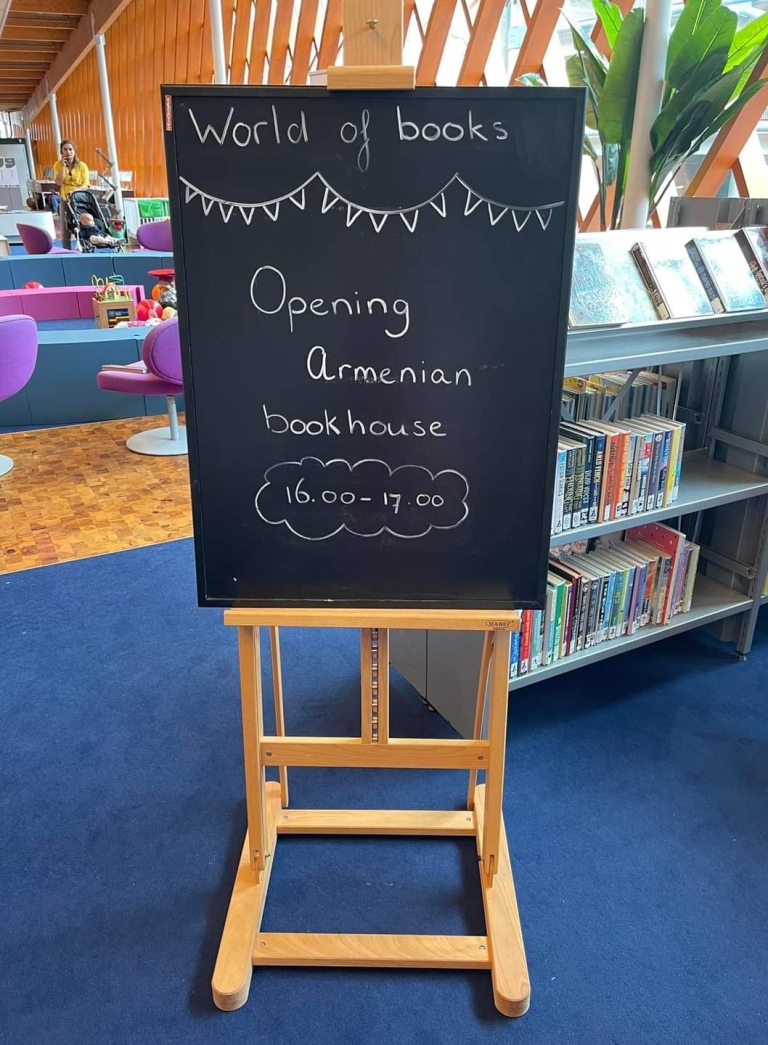 World of books
Opening
Armenian
bookhouse
16.00-17.00
MABEF